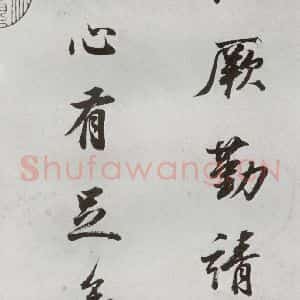 厥勤請
心有足
ShufawangCN